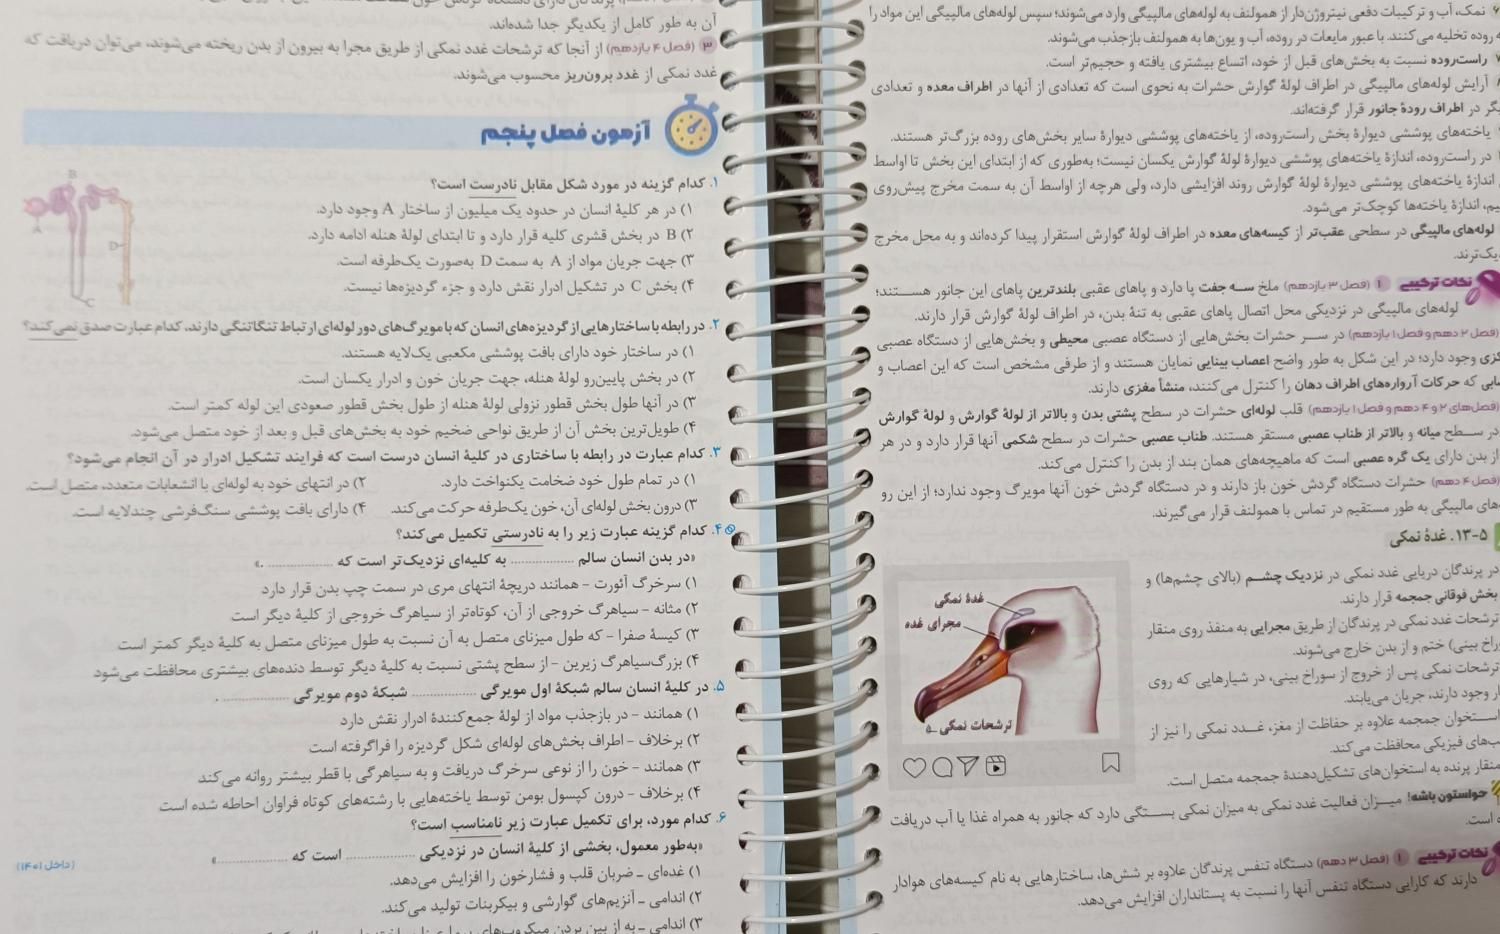 نمک، آب و ترکیبات دفعی نیتروژن‌دار از همولنف به لوله‌های مالپیگی وارد می‌شوند؛ سپس لوله‌های مالپیگی این مواد را
روده تخلیه می‌کنند. با عبور مایعات در روده، آب و یون‌ها به همولنف بازجذب می‌شوند.
راست‌روده نسبت به بخش‌های قبل از خود، اتساع بیشتری یافته و حجیم‌تر است.
آرایش لوله‌های مالپیگی در اطراف لولهٔ گوارش حشرات به نحوی است که تعدادی از آنها در اطراف معده و تعدادی
در اطراف رودهٔ جانور قرار گرفته‌اند.
یاخته‌های پوششی دیوارهٔ بخش راست‌روده، از یاخته‌های پوششی دیوارهٔ سایر بخش‌های روده بزرگ‌تر هستند.
در راست‌روده، اندازهٔ یاخته‌های پوششی دیوارهٔ لولهٔ گوارش یکسان نیست؛ به‌طوری که از ابتدای این بخش تا اواسط
اندازهٔ یاخته‌های پوششی دیوارهٔ لولهٔ گوارش روند افزایشی دارد، ولی هرچه از اواسط آن به سمت مخرج پیش‌روی
اندازهٔ یاخته‌ها کوچک‌تر می‌شود.
لوله‌های مالپیگی در سطحی عقب‌تر از کیسه‌های معده در اطراف لولهٔ گوارش استقرار پیدا کرده‌اند و به محل مخرج
نکات ترکیبی ۱ (فصل ۳ یازدهم) ملخ سه جفت پا دارد و پاهای عقبی بلندترین پاهای این جانور هستند؛
لوله‌های مالپیگی در نزدیکی محل اتصال پاهای عقبی به تنهٔ بدن، در اطراف لولهٔ گوارش قرار دارند.
(فصل ۲ دهم و فصل ۱ یازدهم) در سر حشرات بخش‌هایی از دستگاه عصبی محیطی و بخش‌هایی از دستگاه عصبی
وجود دارد؛ در این شکل به طور واضح اعصاب بینایی نمایان هستند و از طرفی مشخص است که این اعصاب و
که حرکات آرواره‌های اطراف دهان را کنترل می‌کنند، منشأ مغزی دارند.
(فصل‌های ۲ و ۴ دهم و فصل ۱ یازدهم) قلب لوله‌ای حشرات در سطح پشتی بدن و بالاتر از لولهٔ گوارش و لولهٔ گوارش
در سطح میانه و بالاتر از طناب عصبی مستقر هستند. طناب عصبی حشرات در سطح شکمی آنها قرار دارد و در هر
از بدن دارای یک گره عصبی است که ماهیچه‌های همان بند از بدن را کنترل می‌کند.
(فصل ۴ دهم) حشرات دستگاه گردش خون باز دارند و در دستگاه گردش خون آنها مویرگ وجود ندارد؛ از این رو
مالپیگی به طور مستقیم در تماس با همولنف قرار می‌گیرند.
۵-۱۳. غدهٔ نمکی
در پرندگان دریایی غدد نمکی در نزدیک چشم (بالای چشم‌ها) و
بخش فوقانی جمجمه قرار دارند.
ترشحات غدد نمکی در پرندگان از طریق مجرایی به منفذ روی منقار
بینی) ختم و از بدن خارج می‌شوند.
ترشحات نمکی پس از خروج از سوراخ بینی، در شیارهایی که روی
وجود دارند، جریان می‌یابند.
استخوان جمجمه علاوه بر حفاظت از مغز، غدد نمکی را نیز از
فیزیکی محافظت می‌کند.
منقار پرنده به استخوان‌های تشکیل‌دهندهٔ جمجمه متصل است.
غدهٔ نمکی
مجرای غده
ترشحات نمکی
حواستون باشه! میزان فعالیت غدد نمکی به میزان نمکی بستگی دارد که جانور به همراه غذا یا آب دریافت
است.
نکات ترکیبی ۱ (فصل ۳ دهم) دستگاه تنفس پرندگان علاوه بر شش‌ها، ساختارهایی به نام کیسه‌های هوادار
دارند که کارایی دستگاه تنفس آنها را نسبت به پستانداران افزایش می‌دهد.
آن به طور کامل از یکدیگر جدا شده‌اند.
۳ (فصل ۴ یازدهم) از آنجا که ترشحات غدد نمکی از طریق مجرا به بیرون از بدن ریخته می‌شوند، می‌توان دریافت که
غدد نمکی از غدد برون‌ریز محسوب می‌شوند.
آزمون فصل پنجم
۱. کدام گزینه در مورد شکل مقابل نادرست است؟
۱) در هر کلیهٔ انسان در حدود یک میلیون از ساختار A وجود دارد.
۲) B در بخش قشری کلیه قرار دارد و تا ابتدای لولهٔ هنله ادامه دارد.
۳) جهت جریان مواد از A به سمت D به‌صورت یک‌طرفه است.
۴) بخش C در تشکیل ادرار نقش دارد و جزء گردیزه‌ها نیست.
B
A
D
C
۲. در رابطه با ساختارهایی از گردیزه‌های انسان که با مویرگ‌های دور لوله‌ای ارتباط تنگاتنگی دارند، کدام عبارت صدق نمی‌کند؟
۱) در ساختار خود دارای بافت پوششی مکعبی یک‌لایه هستند.
۲) در بخش پایین‌رو لولهٔ هنله، جهت جریان خون و ادرار یکسان است.
۳) در آنها طول بخش قطور نزولی لولهٔ هنله از طول بخش قطور صعودی این لوله کمتر است.
۴) طویل‌ترین بخش آن از طریق نواحی ضخیم خود به بخش‌های قبل و بعد از خود متصل می‌شود.
۳. کدام عبارت در رابطه با ساختاری در کلیهٔ انسان درست است که فرایند تشکیل ادرار در آن انجام می‌شود؟
۱) در تمام طول خود ضخامت یکنواخت دارد. ۲) در انتهای خود به لوله‌ای با انشعابات متعدد، متصل است.
۳) درون بخش لوله‌ای آن، خون یک‌طرفه حرکت می‌کند. ۴) دارای بافت پوششی سنگ‌فرشی چندلایه است.
۴. کدام گزینه عبارت زیر را به نادرستی تکمیل می‌کند؟
«در بدن انسان سالم ............ به کلیه‌ای نزدیک‌تر است که ............ .»
۱) سرخرگ آئورت - همانند دریچهٔ انتهای مری در سمت چپ بدن قرار دارد
۲) مثانه - سیاهرگ خروجی از آن، کوتاه‌تر از سیاهرگ خروجی از کلیهٔ دیگر است
۳) کیسهٔ صفرا - که طول میزنای متصل به آن نسبت به طول میزنای متصل به کلیهٔ دیگر کمتر است
۴) بزرگ‌سیاهرگ زیرین - از سطح پشتی نسبت به کلیهٔ دیگر توسط دنده‌های بیشتری محافظت می‌شود
۵. در کلیهٔ انسان سالم شبکهٔ اول مویرگی ............ شبکهٔ دوم مویرگی ............ .
۱) همانند - در بازجذب مواد از لولهٔ جمع‌کنندهٔ ادرار نقش دارد
۲) برخلاف - اطراف بخش‌های لوله‌ای شکل گردیزه را فراگرفته است
۳) همانند - خون را از نوعی سرخرگ دریافت و به سیاهرگی با قطر بیشتر روانه می‌کند
۴) برخلاف - درون کپسول بومن توسط یاخته‌هایی با رشته‌های کوتاه فراوان احاطه شده است
۶. کدام مورد، برای تکمیل عبارت زیر نامناسب است؟
«به‌طور معمول، بخشی از کلیهٔ انسان در نزدیکی ............ است که ............» (داخل ۱۴۰۱)
۱) غده‌ای ـ ضربان قلب و فشارخون را افزایش می‌دهد.
۲) اندامی ـ آنزیم‌های گوارشی و بیکربنات تولید می‌کند.
۳) اندامی ـ به از بین بردن میکروب‌های